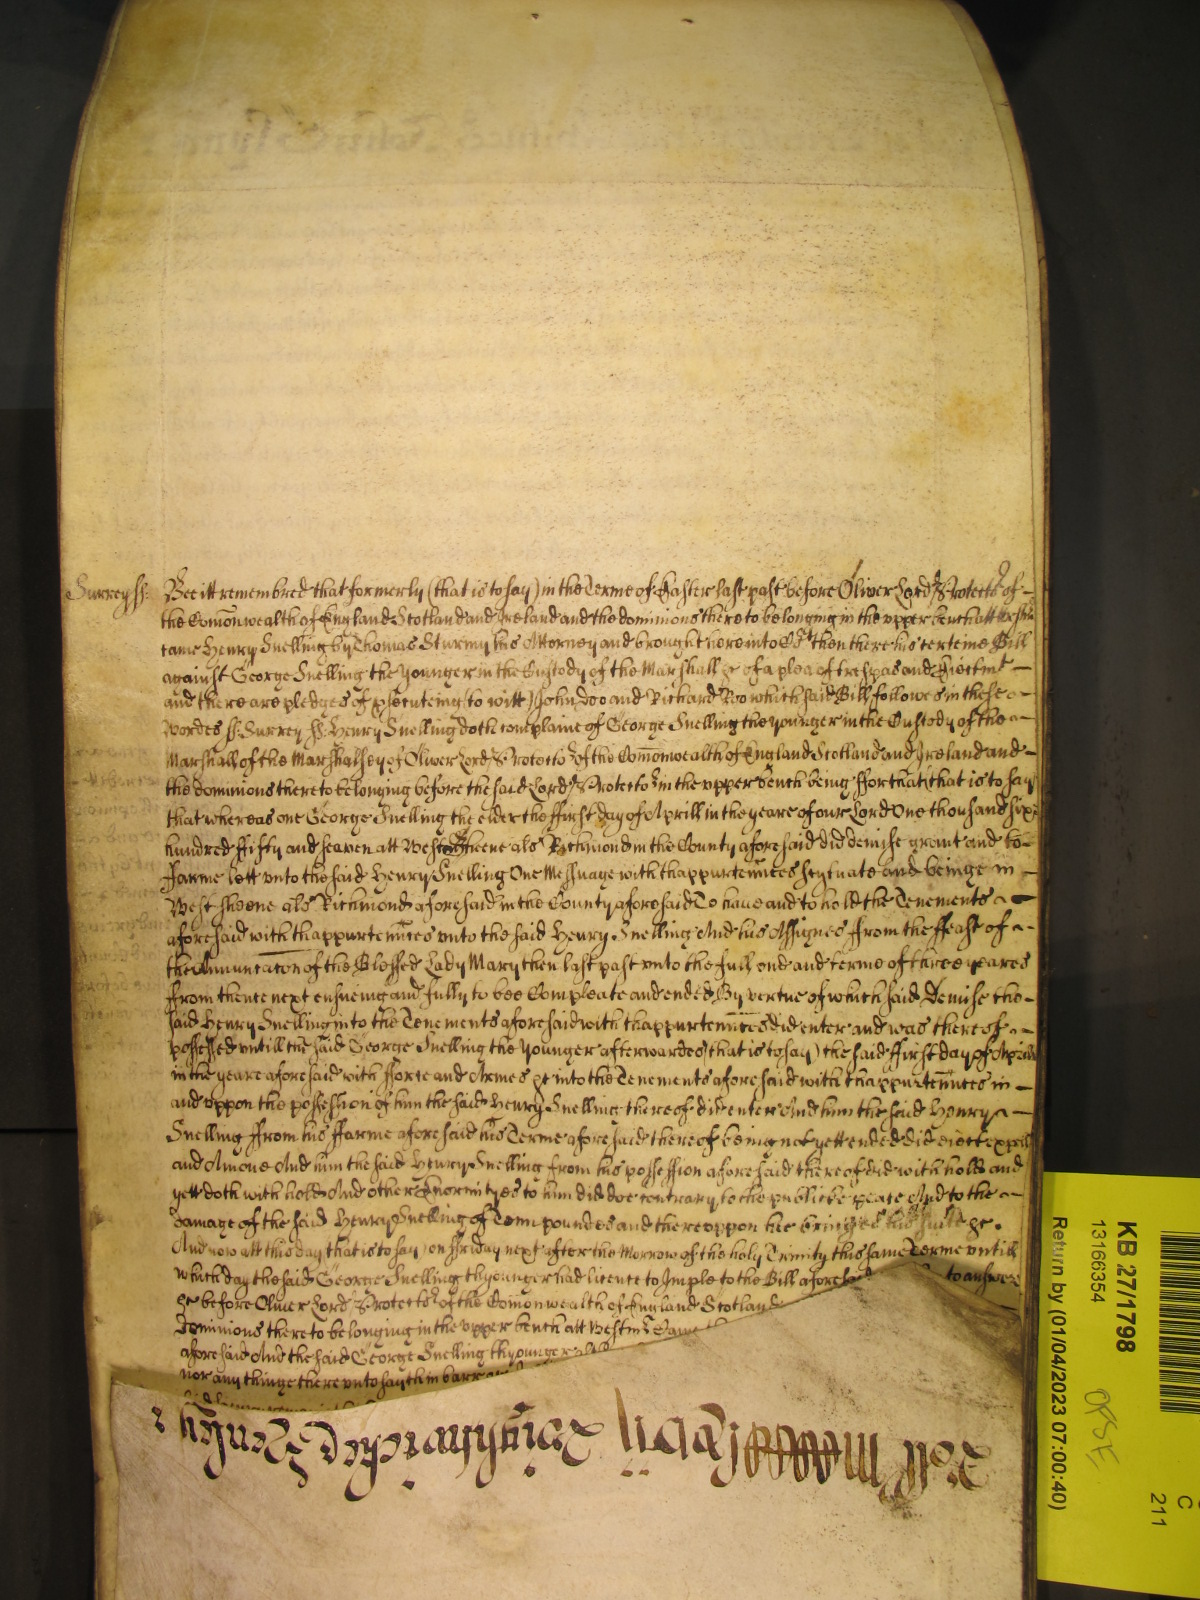 Surrey ss: Bee itt remembred that formerly (that is to say) in the Terme of Easter last past before Oliver Lord Protector of
the Com̄onwealth of England Scotland and Ireland and the dominions there to belonging in the upper bench att Westmr
came Henry Snelling by Thomas Sturmy his Attorney and brought here into Cort then there his certeine Bill
against George Snelling the younger in the Custody of the Marshall &c of a plea of trespas and Eiectmt
and there are pledges of psecuteing (to witt) John Doo and Richard Roo which said Bill followes in these
wordes ss: Surrey ss: Henry Snelling doth complaine of George Snelling the younger in the Custody of the
Marshall of the Marshalsey of Oliver Lord Protector of the Com̄onwealth of England Scotland and Ireland and
the dominions there to belonging before the said Lord Protector in the upper bench being ffor that (that is to say)
that whereas one George Snelling the elder the ffirst day of Aprill in the yeare of our Lord One thousand sixe
hundred ffifty and seaven att West Sheene als Richmond in the County aforesaid did demise grant and to
ffarme lett unto the said Henry Snelling One Messuage with thappurteñnces scytuate and beinge in
West Sheene als Richmond aforesaid in the County aforesaid To have and to hold the Tenements
aforesaid with thappurteñnces unto the said Henry Snelling And his Assignes ffrom the ffeast of
the Annunciac̄on of the Blessed Lady Mary then last past unto the full end and terme of three yeares
ffrom thence next ensueing and fully to bee Compleate and ended By vertue of which said Demise the
said Henry Snelling into the Tenements aforesaid with thappurteñnces did enter and was thereof
possessed untill the said George Snelling the younger afterwardes (that is to say) the said ffirst day of Aprill
in the yeare aforesaid with fforce and Armes &c into the Tenements aforesaid with thappurteñnces in
and uppon the possession of him the said Henry Snelling thereof did enter And him the said Henry
Snelling ffrom his ffarme aforesaid his Terme aforesaid thereof being not yett ended did eiect expell
and Amove And him the said Henry Snelling from his possession aforesaid thereof did with hold and
yett doth with hold And other Enormityes to him did doe contrary to the publicke peace And to the
damage of the said Henry Snelling of Tenn poundes and thereuppon hee bringes his suite &c.
And now att this day that is to say on ffriday next after the Morrow of the holy Trinity this same Terme untill
which day the said George Snelling thyounger had licence to Imple to the Bill aforesaid to answer
&c before Oliver Lord Protector of the Com̄onwealth of England Scotland
dominions there to belonging in the upper bench att Westmr Came
aforesaid And the said George Snelling thyounger
nor any thinge there unto sayth in barr
KB 27/1798
13166354
Return by (01/04/2023 07:00:40)
C
211